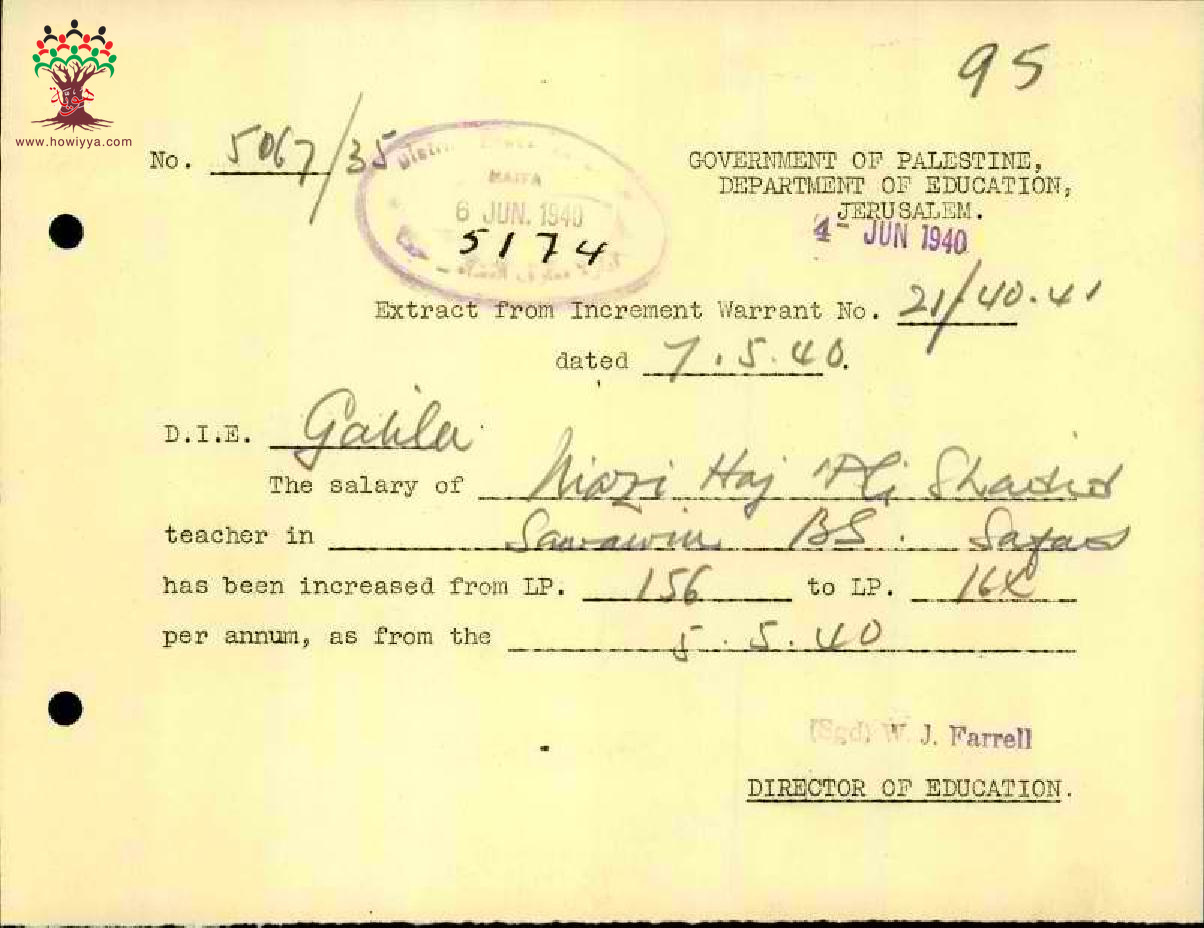 95
www.howiyya.com
No. 5067/35
GOVERNMENT OF PALESTINE,
DEPARTMENT OF EDUCATION,
JERUSALEM.
4 - JUN 1940
HAIFA
6 JUN. 1940
5174
Extract from Increment Warrant No. 21/40.41
dated 7.5.40.
D.I.E. Galilee
The salary of Niazi Haj Ali
teacher in BS. Safad
has been increased from LP. 156 to LP.
per annum, as from the 5.5.40
(Sgd) W. J. Farrell
DIRECTOR OF EDUCATION.